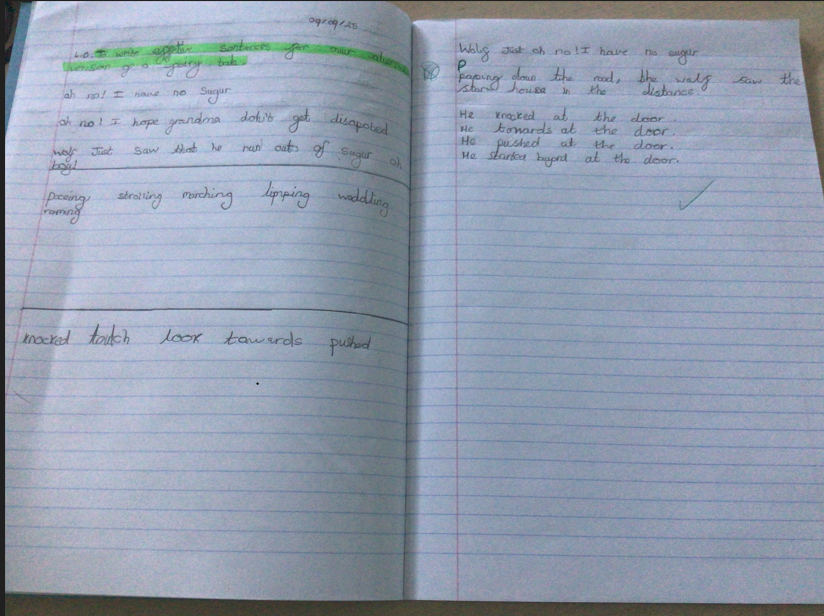 09/09/25
L.O. To write effective sentences for our
version of a fairy tale
oh no! I have no sugar
oh no! I hope grandma dosn't get disapoted
wolf Jist saw that he run outs of sugar oh
boy!
Paceing strolling marching limping waddling
roaming
knocked look towards pushed
Wolf Jist oh no! I have no sugar
P
down the road, the wolf saw the
house in the distance.
He knocked at the door.
He towards at the door.
He pushed at the door.
He at the door.